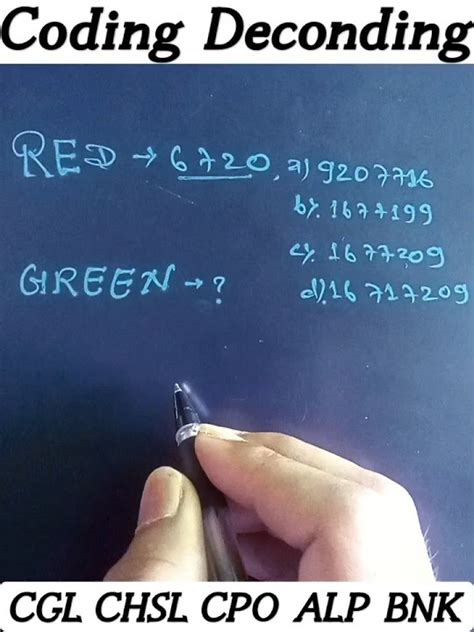 Coding Deconding
RED → 6720, a) 9207716
b). 1677199
c). 1677209
GREEN → ?
d). 16717209
CGL CHSL CPO ALP BNK